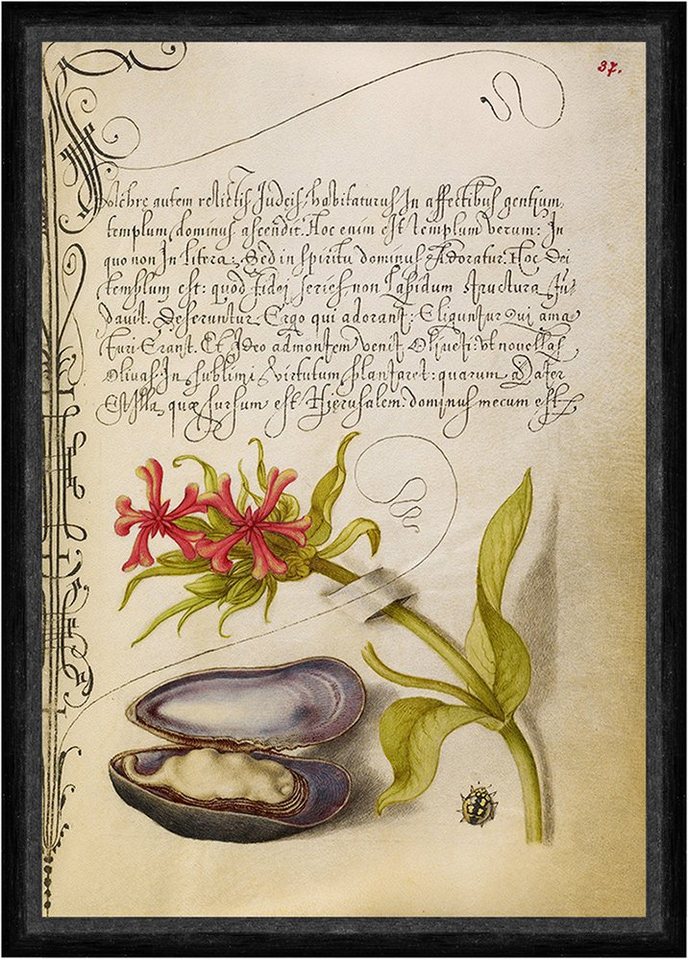 37.
Pulchre autem relictis Judeis, habitaturus In affectibus gentium
templum, dominus ascendit. Hoc enim est templum verum: In
quo non In litera: Sed in spiritu dominus Adoratur. Hoc Dei
templum est: quod fidei series, non lapidum structura fun
davit. Deseruntur Ergo qui adorant: Eliguntur Qui ama
turi Erant. Et Ideo ad montem venit Oliveti: Ut novellas
Olivas In sublimi virtutum plantaret: quarum Mater
Est Illa, quæ sursum est Hierusalem. dominus mecum est